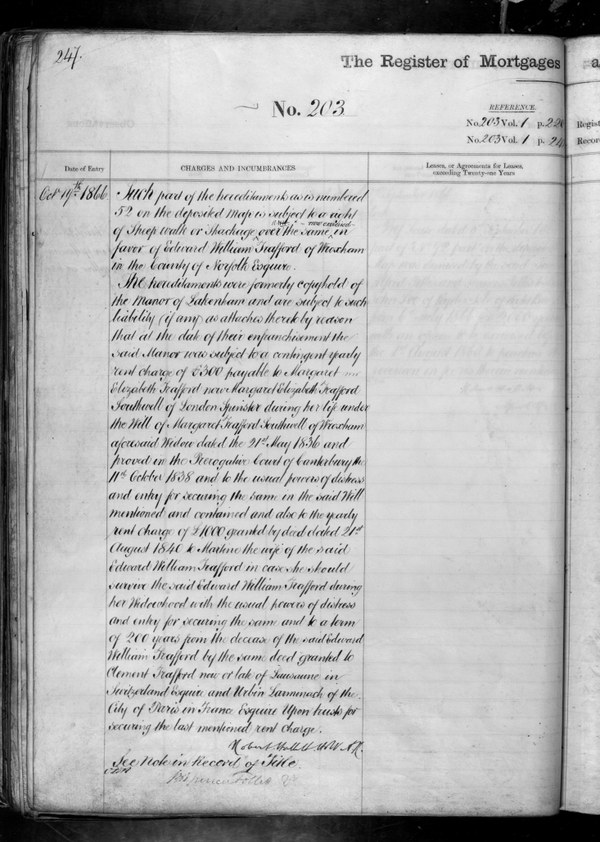 247.
The Register of Mortgages a
No. 203
REFERENCE.
No. 203 Vol. 1 p. 220
No. 203 Vol. 1 p. 24
Regist
Recor
Date of Entry
CHARGES AND INCUMBRANCES
Leases, or Agreements for Leases,
exceeding Twenty-one Years
Oct 19th 1866
Such part of the hereditaments as is numbered
52 on the deposited map is subject to a right
of Sheep walk or Shackage over the same in
favor of Edward William Trafford of Wroxham
in the County of Norfolk Esquire.
The hereditaments were formerly copyhold of
the Manor of Lakenham and are subject to such
liability (if any) as attaches thereto by reason
that at the date of their enfranchisement the
said Manor was subject to a contingent yearly
rent charge of £300 payable to Margaret
Elizabeth Trafford now Margaret Elizabeth Trafford
Southwell of London Spinster during her life under
the Will of Margaret Trafford Southwell of Wroxham
aforesaid Widow dated the 21st May 1836 and
proved in the Prerogative Court of Canterbury the
11th October 1838 and to the usual powers of distress
and entry for securing the same in the said Will
mentioned and contained and also to the yearly
rent charge of £1000 granted by deed dated 21st
August 1840 to Martine the wife of the said
Edward William Trafford in case she should
survive the said Edward William Trafford during
her Widowhood with the usual powers of distress
and entry for securing the same and to a term
of 200 years from the decease of the said Edward
William Trafford by the same deed granted to
Clement Trafford now or late of Lausanne in
Switzerland Esquire and Urbin Lanminack of the
City of Paris in France Esquire Upon trusts for
securing the last mentioned rent charge.
See Note in Record of Title